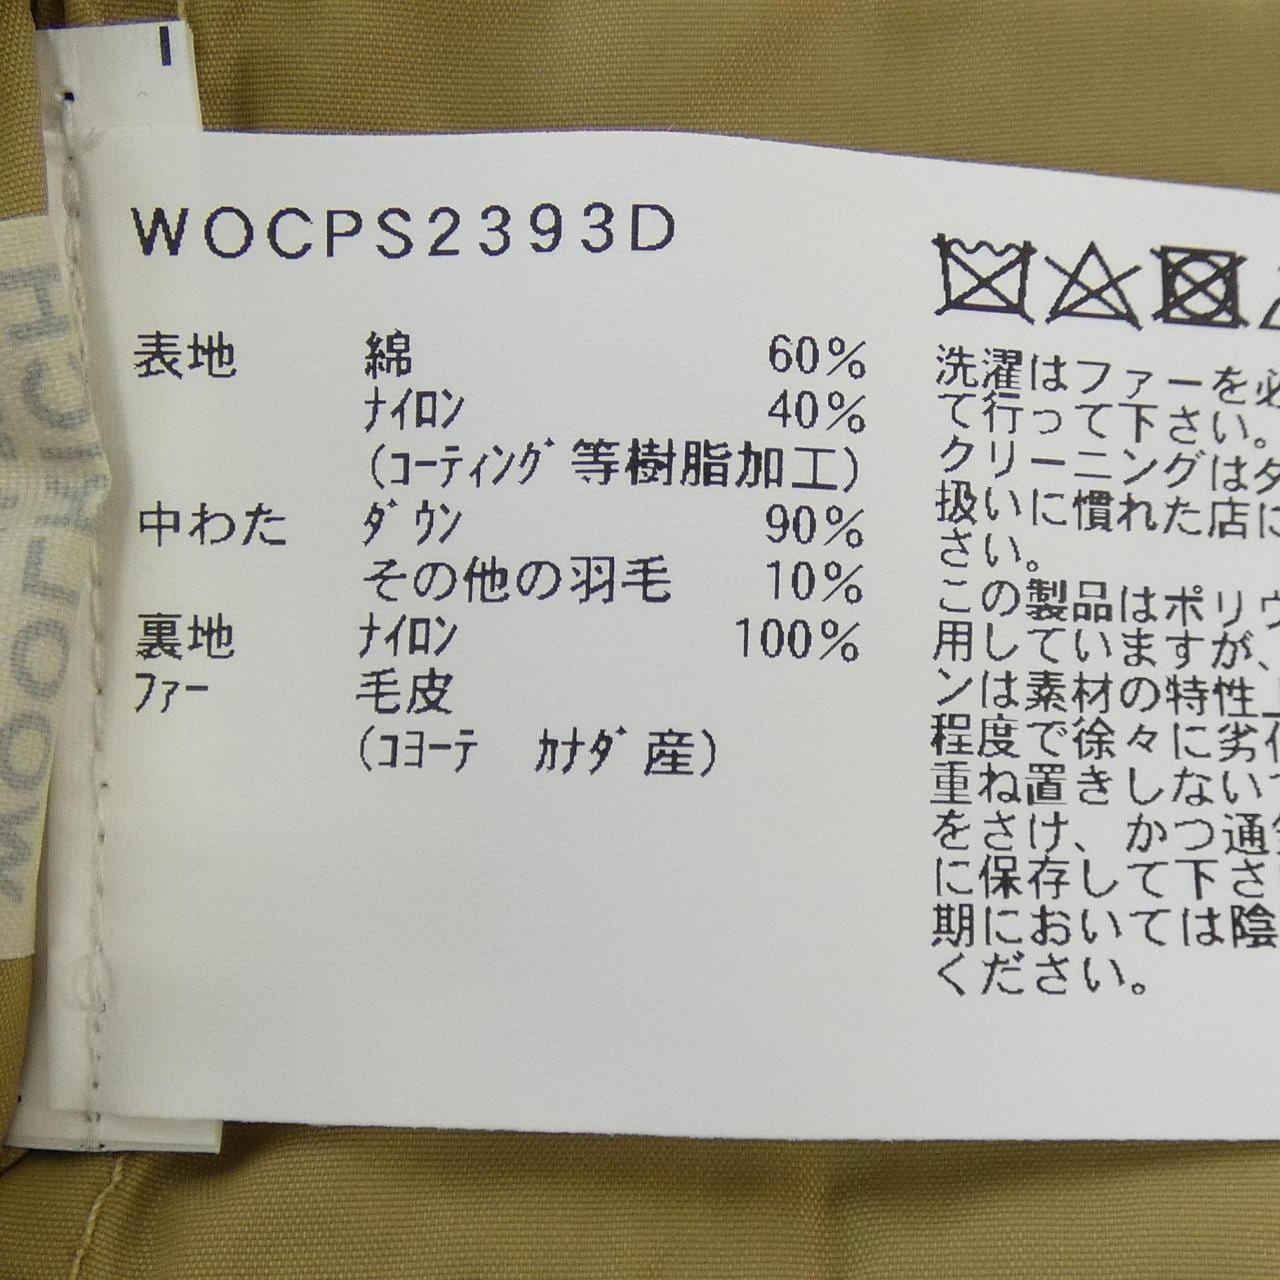 WOCPS2393D
表地 綿 60%
ナイロン 40%
(コーティング等樹脂加工)
中わた ダウン 90%
その他の羽毛 10%
裏地 ナイロン 100%
ファー 毛皮
(コヨーテ カナダ産)
洗濯はファーを必
て行って下さい。
クリーニングはダ
扱いに慣れた店に
さい。
この製品はポリウ
用していますが、
ンは素材の特性上
程度で徐々に劣化
重ね置きしないで
をさけ、かつ通気
に保存して下さい
期においては陰
ください。
WOOLRICH